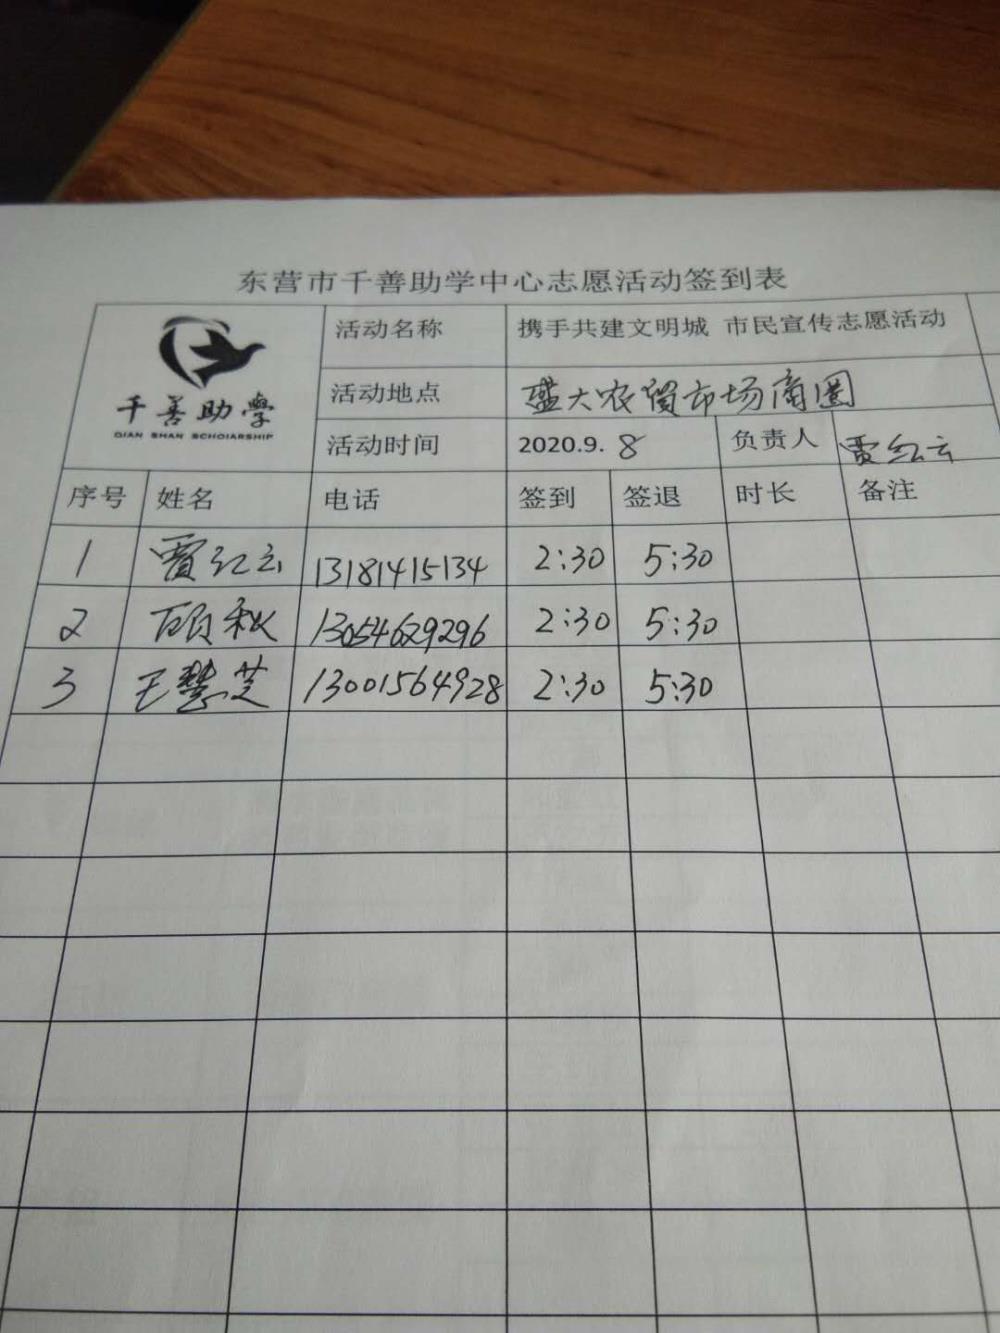 东营市千善助学中心志愿活动签到表
千善助學
QIAN SHAN SCHOIARSHIP
活动名称 携手共建文明城 市民宣传志愿活动
活动地点 盛大农贸市场商圈
活动时间 2020.9.8 负责人 贾红云
序号 姓名 电话 签到 签退 时长 备注
1 贾红云 13181415134 2:30 5:30
2 顾秋 13054629296 2:30 5:30
3 王慧芝 13001564928 2:30 5:30